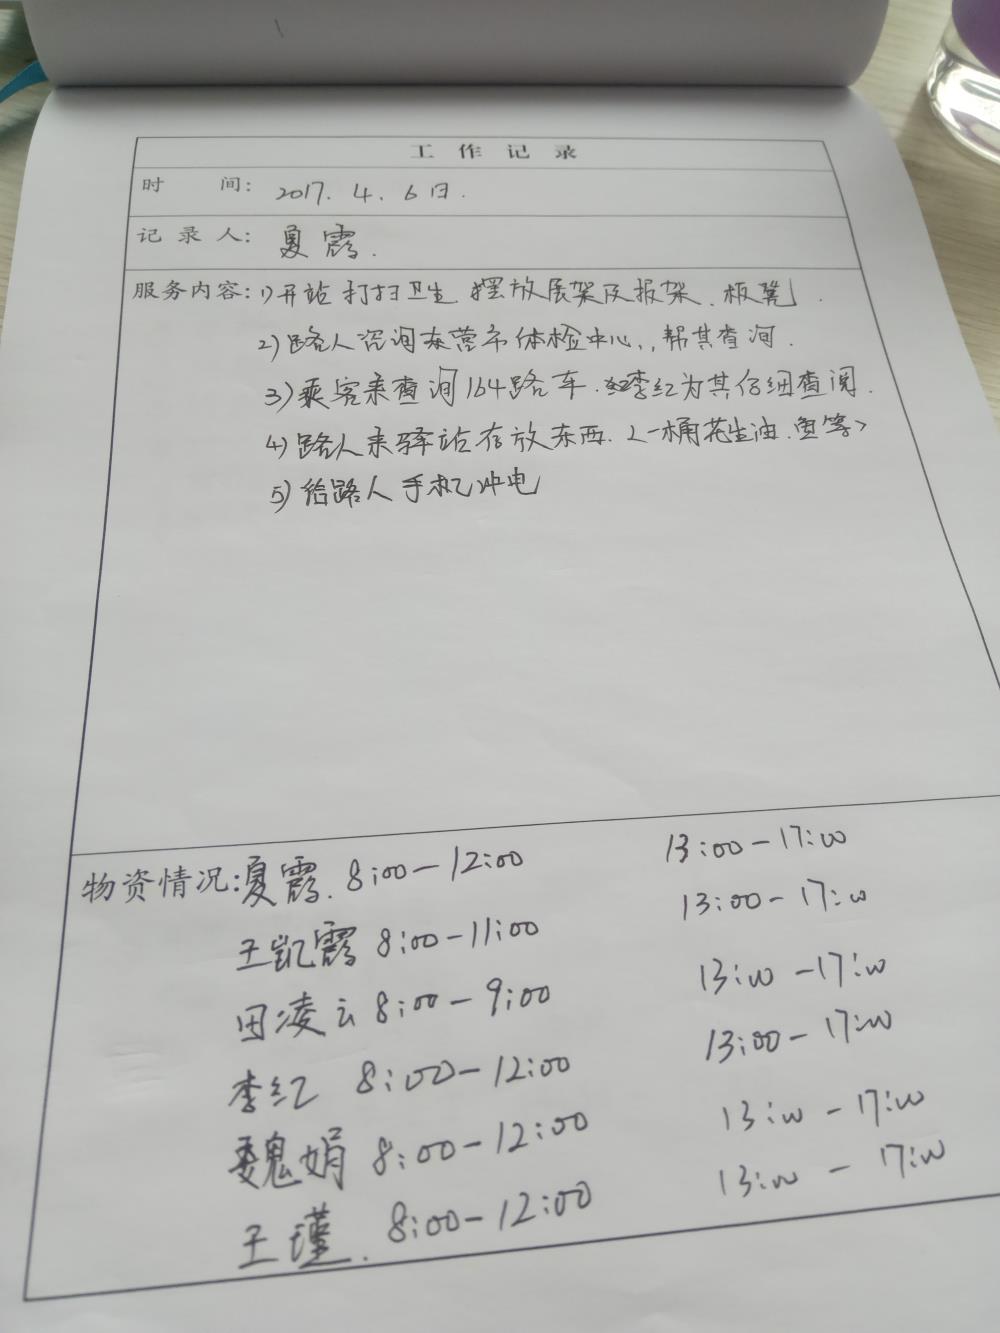 工作记录
时 间: 2017.4.6日.
记录人: 夏霞.
服务内容: 1)开站打扫卫生 摆放展架及报架、板凳.
2)路人咨询东营市体检中心,,帮其查询.
3)乘客来查询164路车.李红为其仔细查阅.
4)路人来驿站存放东西.<一桶花生油、鱼等>
5)给路人手机冲电
物资情况: 夏霞. 8:00-12:00 13:00-17:00
王凯霞 8:00-11:00 13:00-17:00
田凌云 8:00-9:00 13:00-17:00
李红 8:00-12:00 13:00-17:00
魏娟 8:00-12:00 13:00-17:00
王瑾. 8:00-12:00 13:00-17:00